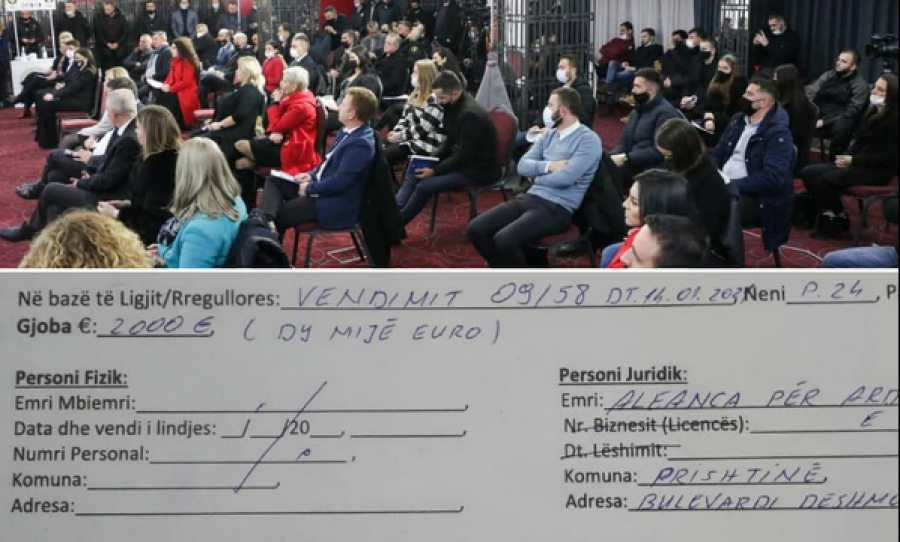 Në bazë të Ligjit/Rregullores: VENDIMIT 09/58 DT. 14.01.2021 Neni P. 24, P
Gjoba €: 2000 €, ( DY MIJË EURO )
Personi Fizik:
Emri Mbiemri:
Data dhe vendi i lindjes: __/__/20__,
Numri Personal:
Komuna:
Adresa:
Personi Juridik:
Emri: ALEANCA PËR ARD
Nr. Biznesit (Licencës): E
Dt. Lëshimit:
Komuna: PRISHTINË,
Adresa: BULEVARDI DËSHMO